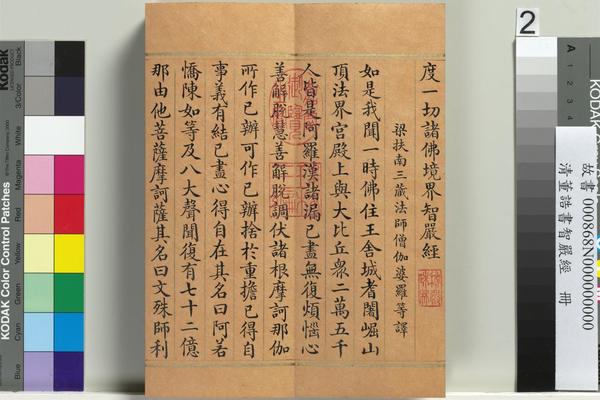 度一切諸佛境界智嚴經
梁扶南三藏法師僧伽婆羅等譯
如是我聞一時佛住王舍城耆闍崛山
頂法界宮殿上與大比丘眾二萬五千
人皆是阿羅漢諸漏已盡無復煩惱心
善解脫慧善解脫調伏諸根摩訶那伽
所作已辦可作已辦捨於重擔已得自
事義有結已盡心得自在其名曰阿若
憍陳如等及八大聲聞復有七十二億
那由他菩薩摩訶薩其名曰文殊師利
2
故書 000868N000000000
清董誥書智嚴經 冊
Kodak
KODAK Color Control Patches
Black
3/Color
White
Magenta
Red
Yellow
Green
Cyan
Blue
A
1
2
3
4
KODAK